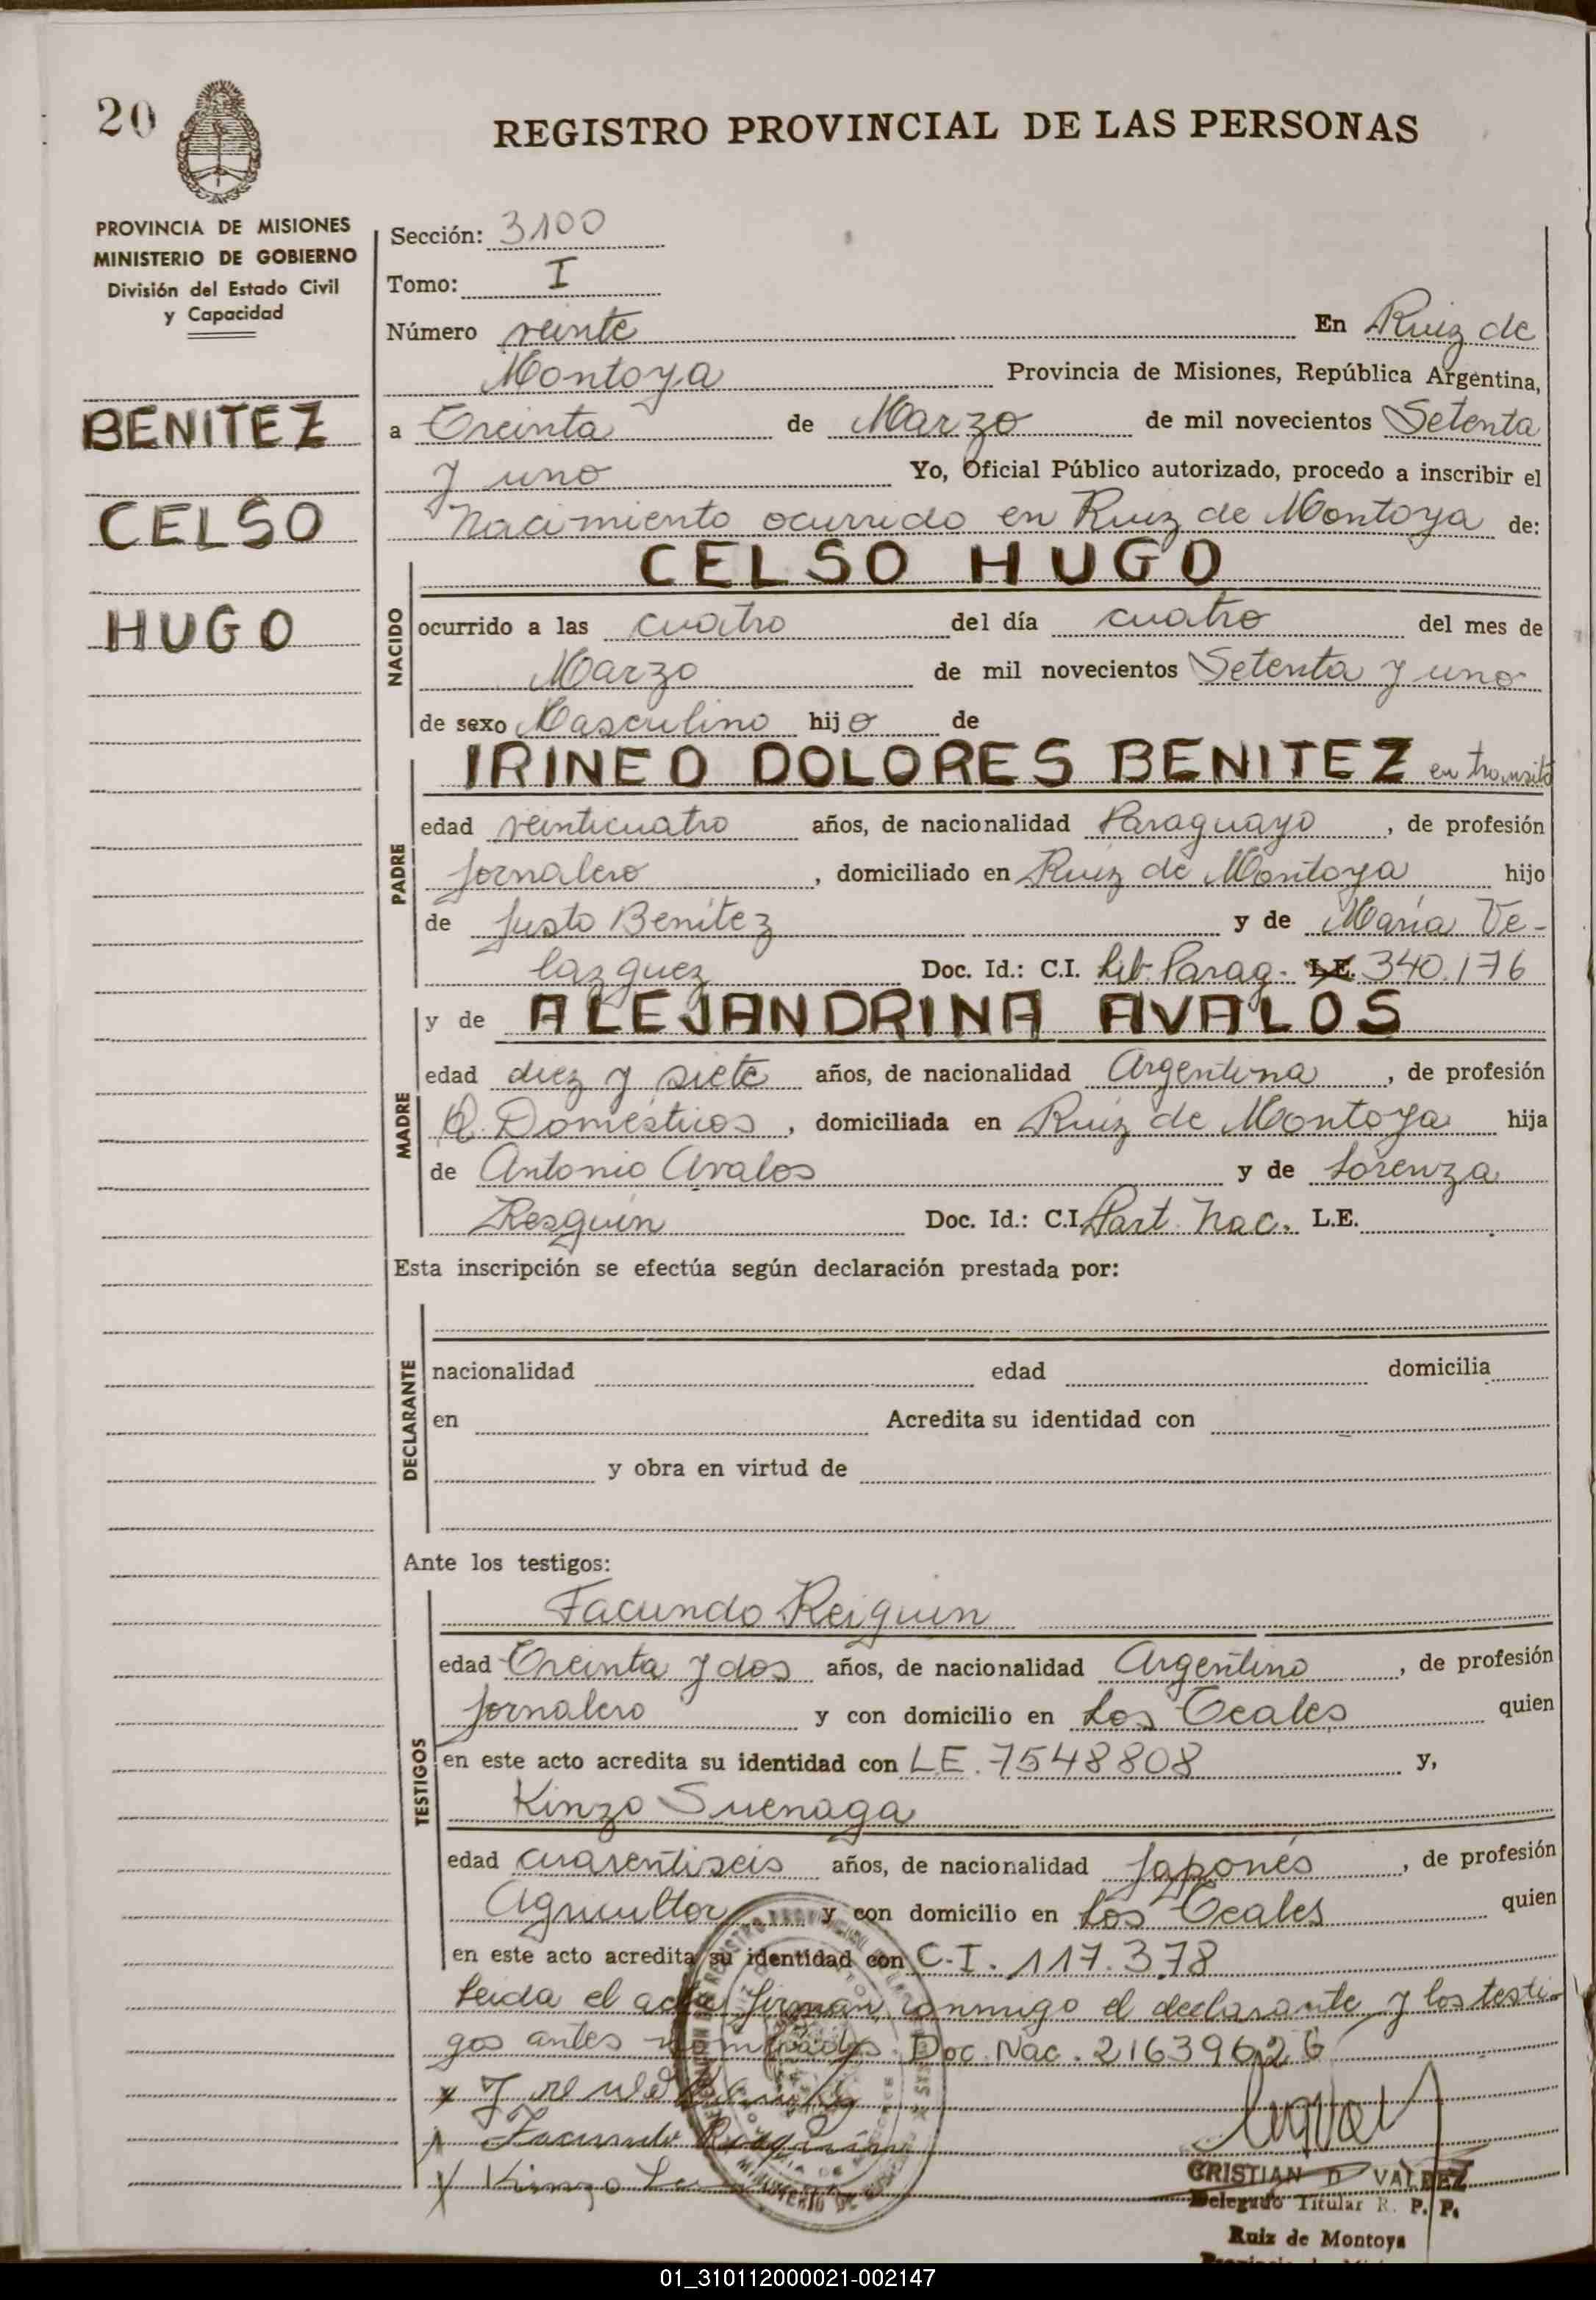 20
REGISTRO PROVINCIAL DE LAS PERSONAS
PROVINCIA DE MISIONES
MINISTERIO DE GOBIERNO
División del Estado Civil
y Capacidad
BENITEZ
CELSO
HUGO
Sección: 3100
Tomo: I
Número veinte En Ruiz de
Montoya Provincia de Misiones, República Argentina,
a Treinta de Marzo de mil novecientos Setenta
y uno Yo, Oficial Público autorizado, procedo a inscribir el
Nacimiento ocurrido en Ruiz de Montoya de:
NACIDO
CELSO HUGO
ocurrido a las cuatro del día cuatro del mes de
Marzo de mil novecientos Setenta y uno
de sexo Masculino hijo de
PADRE
IRINEO DOLORES BENITEZ en transito
edad veinticuatro años, de nacionalidad Paraguayo, de profesión
Jornalero, domiciliado en Ruiz de Montoya hijo
de Justo Benitez y de Maria Ve-
lazquez Doc. Id.: C.I. Lib. Parag. L.E. 340.176
MADRE
y de ALEJANDRINA AVALOS
edad diez y siete años, de nacionalidad Argentina, de profesión
Q. Domésticos, domiciliada en Ruiz de Montoya hija
de Antonio Avalos y de Lorenza
Resquin Doc. Id.: C.I. Part. Nac. L.E.
Esta inscripción se efectúa según declaración prestada por:
DECLARANTE
nacionalidad edad domicilia
en Acredita su identidad con
y obra en virtud de
Ante los testigos:
TESTIGOS
Facundo Reiquin
edad Treinta y dos años, de nacionalidad Argentino, de profesión
Jornalero y con domicilio en Los Teales quien
en este acto acredita su identidad con LE. 7548808 y,
Kinzo Suenaga
edad cuarentiseis años, de nacionalidad Japonés, de profesión
Agricultor y con domicilio en Los Teales quien
en este acto acredita su identidad con C.I. 117.378
Leida el acta firman conmigo el declarante y los testi-
gos antes nombrados. Doc. Nac. 21639626
Facundo
Kinzo
CRISTIAN D VALDEZ
Delegado Titular R. P. P.
Ruiz de Montoya
01_310112000021-002147